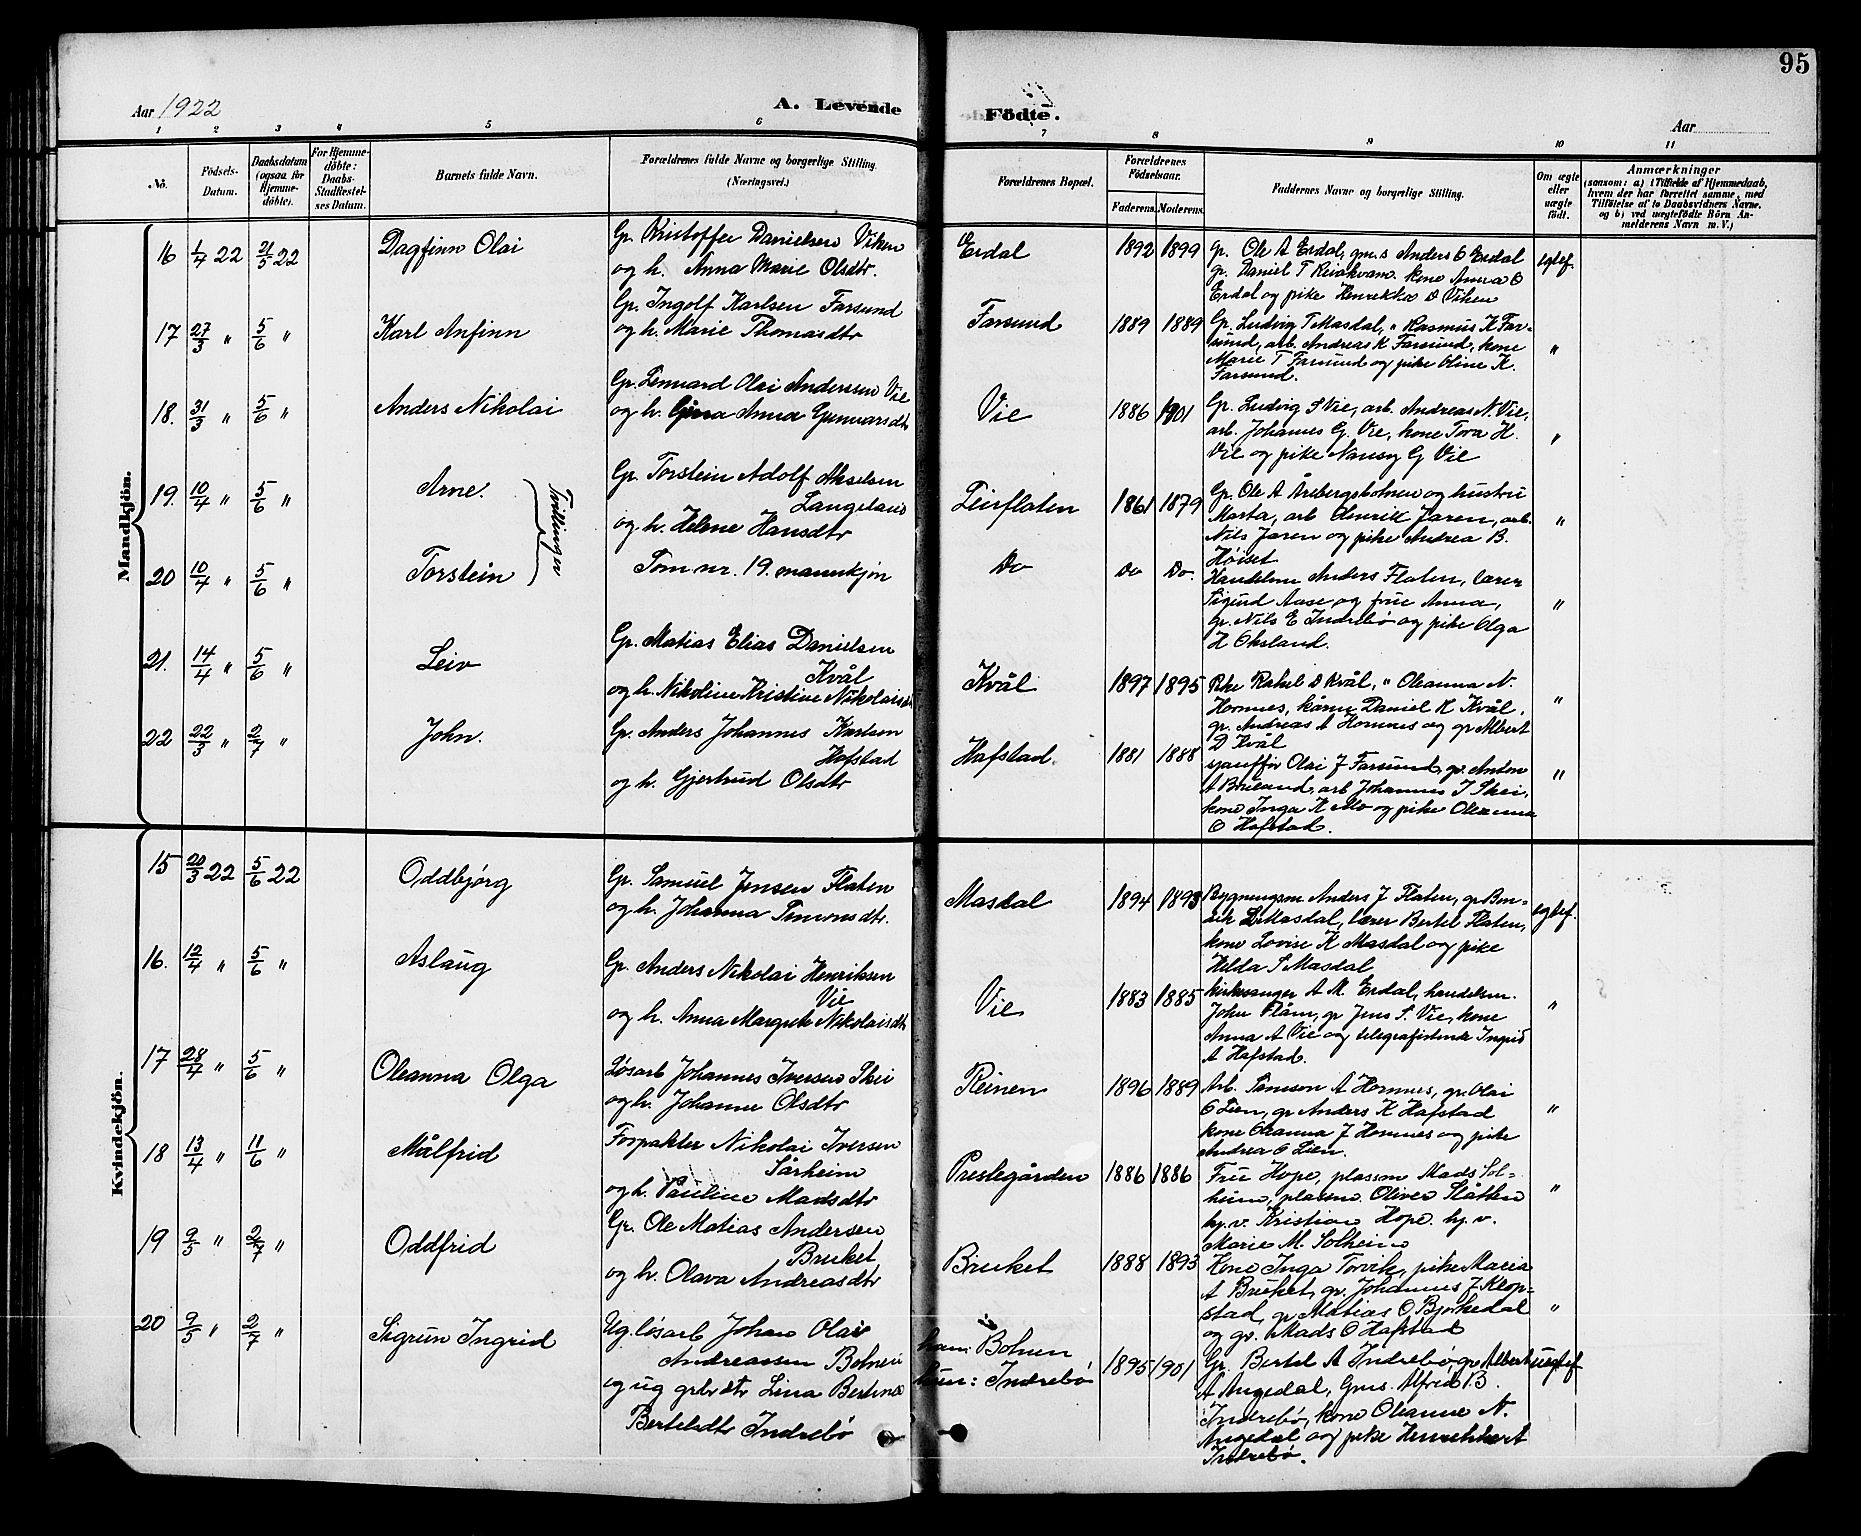 95
Aar 1922
A. Levende
Födte.
Aar
1 2 3 4 5 6 7 8 9 10 11
No.
Födsels-
Datum.
Daabsdatum
(ogsaa for
Hjemme-
döbte).
For Hjemme-
döbte:
Daabs-
Stadfæstel-
ses Datum.
Barnets fulde Navn.
Forældrenes fulde Navne og borgerlige Stilling.
(Næringsvei.)
Forældrenes Bopæl.
Forældrenes
Födselsaar.
Faderens. Moderens.
Faddernes Navne og borgerlige Stilling.
Om ægte
eller
uægte
födt.
Anmærkninger
(saasom: a) i Tilfælde af Hjemmedaab,
hvem der har forrettet samme, med
Tilföielse af to Daabsvidners Navne,
og b) ved uægtefödte Börn An-
melderens Navn m. V.)
Mandkjön.
16 1/4 22 21/5 22 Dagfinn Olai
Gr. Kristoffer Danielsen Viken
og h. Anna Marie Olsdtr.
Erdal 1892 1899
gr. Ole A Erdal, gm.s Anders O Erdal
gr. Daniel T kone Anna O
Erdal og pike Henrikka D Viken
egtef.
17 27/3 " 5/6 " Karl Anfinn
Gr. Ingolf Karlsen Farsund
og h. Marie Thomasdtr
Farsund 1889 1889
Gr. Ludvig T Masdal, " Rasmus K Far-
sund, arb. Andreas K Farsund, kone
Marie T Farsund og pike Oline K.
Farsund.
"
18. 31/3 " 5/6 " Anders Nikolai
Gr. Lennard Olai Anderssen Vie
og h. Anna Gunnarsdtr
Vie 1886 1901
Gr. Ludvig S Vie, arb. Andreas N. Vie,
arb. Johannes G. Vie, kone Tora H.
Vie og pike Nansy G Vie
"
19. 10/4 " 5/6 " Arne.
Tvillinger
Gr. Torstein Adolf Akselsen
Langeland
og h. Helene Hansdtr
Leirflaten 1861 1879
Gr. Ole A Årebergsbotnen og hustru
Marta, arb Henrik Jaren, arb.
Nils Jaren og pike Andrea B.
Høiset
"
20 10/4 " 5/6 " Torstein
Som nr. 19. mannkjøn
Do Do Do.
Handelsm Anders Flaten, lærer
Sigurd Aase og frue Anna,
gr. Nils E Indrebø og pike Olga
H Oksland.
"
21. 14/4 " 5/6 " Leiv
Gr. Matias Elias Danielsen
Kvål
og h. Nikoline Kristine Nikolaisdt
Kvål 1897 1895
Pike Rakel D Kvål, " Oleanna N.
Hornnes, kårm Daniel K Kvål,
gr. Andreas A Hornnes og gr Albert
D Kvål
"
22 22/3 " 2/7 " John.
Gr. Anders Johannes Karlsen
Hofstad
og h. Gjertrud Olsdtr
Hafstad. 1881 1888
sjauffør Olai J Farsund, gr. Anton
A Bruland, arb Johannes I Skei,
kone Inga K Mo og pike Oleanna
O Hafstad.
"
Kvindekjön.
15 20/3 22 5/6 22 Oddbjørg
Gr. Samuel Jensen Flaten
og h. Johanna Simonsdtr.
Masdal 1894 1893
Bygningsm Anders J Flaten, gr Ben-
dik L Masdal, lærer Bertel Flaten,
kone Lovise K Masdal og pike
Hilda S Masdal
egtef.
16. 12/4 " 5/6 " Aslaug
Gr. Anders Nikolai Henriksen
Vie
og h. Anna Margrete Nikolaisdtr
Vie 1883 1885
Kirkesanger A M. Erdal, handelsm.
John Flåm, gr Jens S. Vie, kone
Anna A Vie og telegrafistinde Ingrid
A Hafstad.
"
17 28/4 " 5/6 " Oleanna Olga
Løsarb Johannes Iversen Skei
og h. Johanne Olsdtr
Reinen 1896 1889
Arb. Samson A Hornnes, gr. Olai
O Lien, gr Anders K Hafstad
kone Oleanna J Hornnes og pike
Andrea O Lien.
"
18 13/4 " 11/6 " Målfrid
Forpakter Nikolai Iversen
Sårheim
og h. Pauline Madsdtr
Prestegården 1886 1886
Frue Hope, plassm Mads Sol-
heim, plassm. Oliver Slåtten
hj.v. Kristian Hope. hj. v.
Marie M. Solheim
"
19 9/5 " 2/7 " Oddfrid
Gr. Ole Matias Andersen
Bruket
og h. Olava Andreasdtr
Bruket 1888 1893
Kone Inga Torvik, pike Maria
A Bruket, gr. Johannes J. Klop-
stad, gr Matias O Bjørkedal
og gr. Mads O Hafstad
"
20 9/5 " 2/7 " Sigrun Ingrid
Ug. løsarb Johan Olai
Andreassen Botnen
og ug grbr dtr Lina Bertine
Bertelsdtr Indrebø
han: Botnen
hun: Indrebø
1895 1901
Gr. Bertel A Indrebø, gr Albert
A Angedal, Gms. Alfred B.
Indrebø, kone Oleanne N.
Angedal og pike Henrikke A
Indrebø.
uegtef